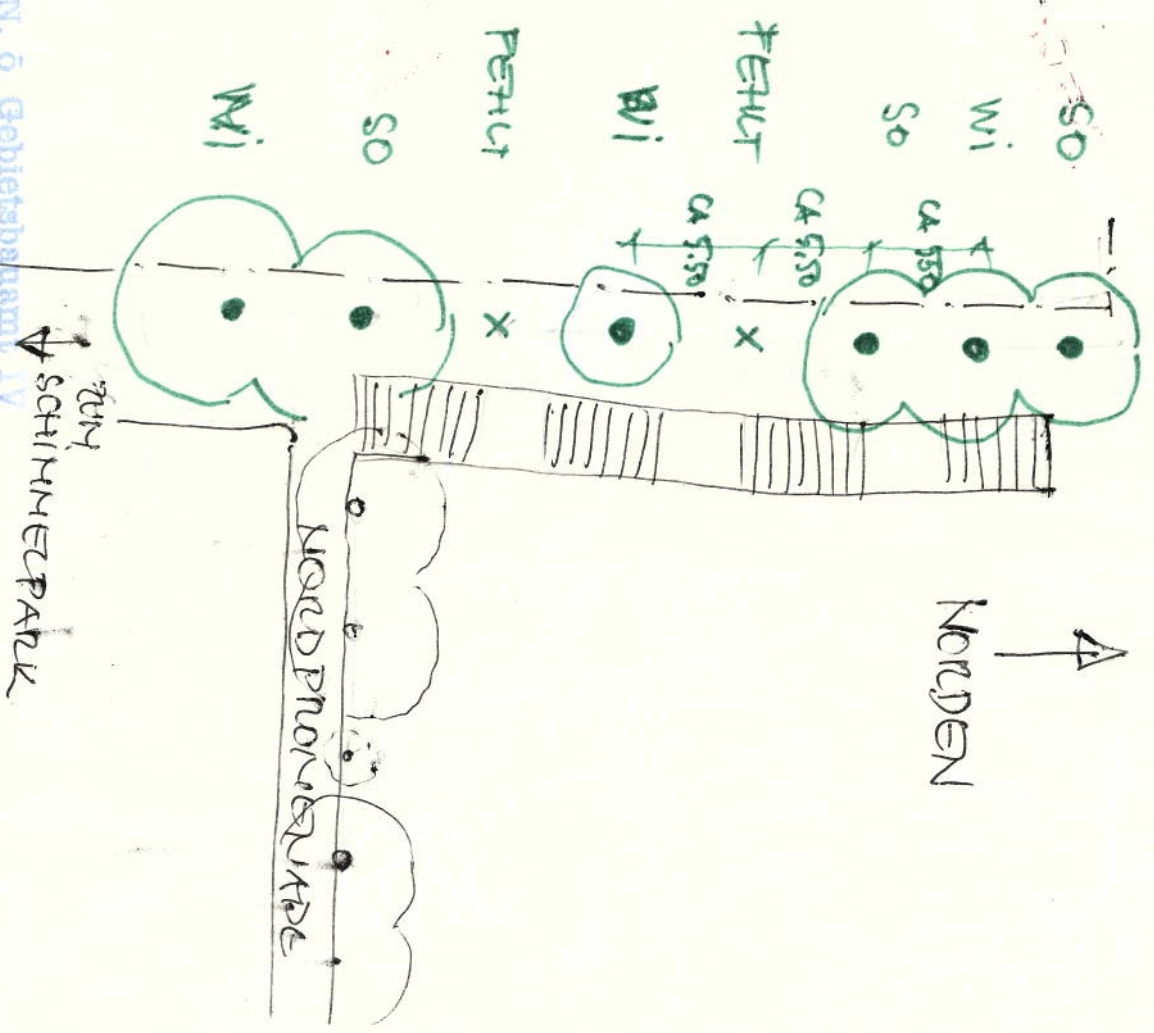 SO
Wi
SO
FEHLT
Wi
FEHLT
SO
Wi
CA 5.50
CA 5,50
CA 5.50
NORDEN
NORDPROMENADE
ZUM
SCHIMMELPARK
N. ö Gebietsbauamt IV